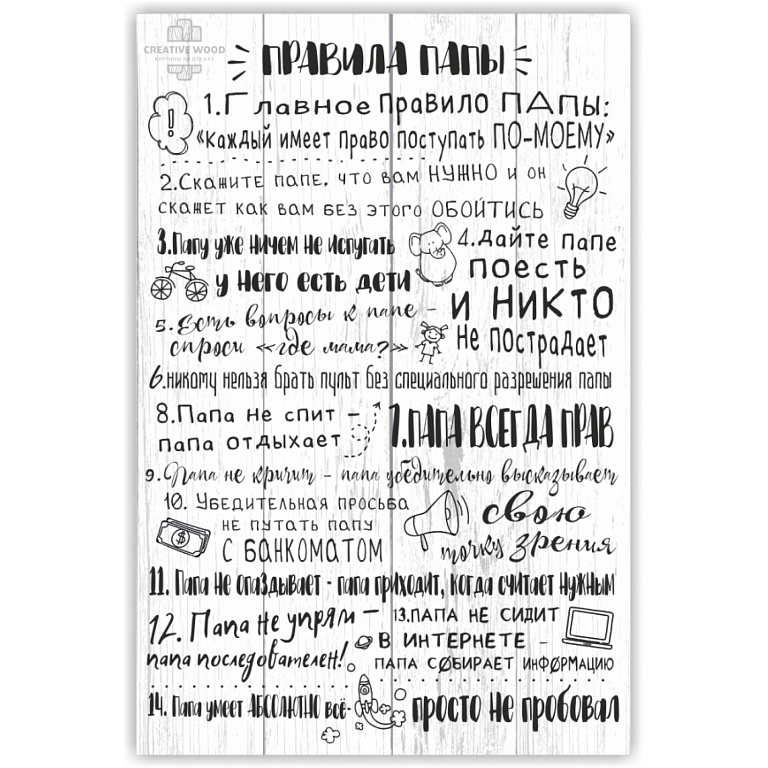 CREATIVE WOOD
КАРТИНЫ НА ДОСКАХ
ПРАВИЛА ПАПЫ
1. Главное правило ПАПЫ:
«Каждый имеет право поступать ПО-МОЕМУ»
2. Скажите папе, что вам НУЖНО и он
скажет как вам без этого ОБОЙТИСЬ
3. Папу уже ничем не испугать
у него есть дети
4. Дайте папе
поесть
и НИКТО
не пострадает
5. Есть вопросы к папе -
спроси «где мама?»
6. никому нельзя брать пульт без специального разрешения папы
8. Папа не спит -
папа отдыхает
7. ПАПА ВСЕГДА ПРАВ
9. Папа не кричит - папа убедительно высказывает
свою
точку зрения
10. Убедительная просьба
не путать папу
с банкоматом
11. Папа не опаздывает - папа приходит, когда считает нужным
12. Папа не упрям -
папа последователен!
13. ПАПА НЕ СИДИТ
В ИНТЕРНЕТЕ -
ПАПА СОБИРАЕТ ИНФОРМАЦИЮ
14. Папа умеет АБСОЛЮТНО всё-
просто не пробовал